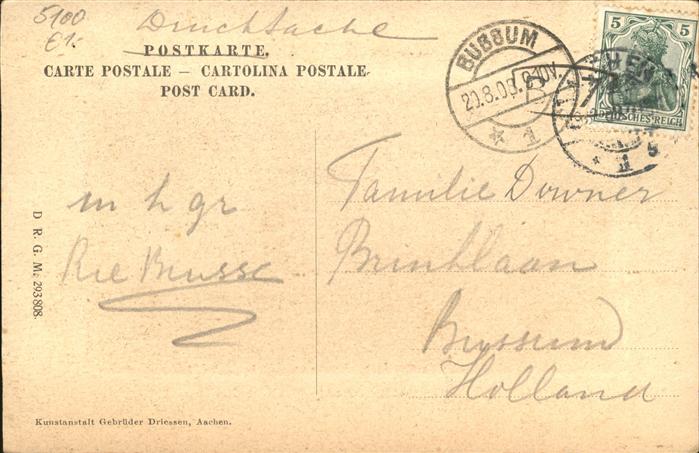 5100
€1.-
Drucksache
POSTKARTE.
CARTE POSTALE – CARTOLINA POSTALE
POST CARD.
BUSSUM
20.8.
1
5 5
DEUTSCHES REICH
m h gr
Rie
D. R. G. M. 293808.
Familie Downer
Brinklaan
Bussum
Holland
Kunstanstalt Gebrüder Driessen, Aachen.